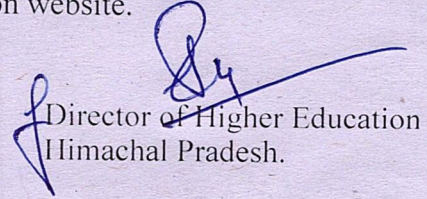 on website.
Director of Higher Education
Himachal Pradesh.